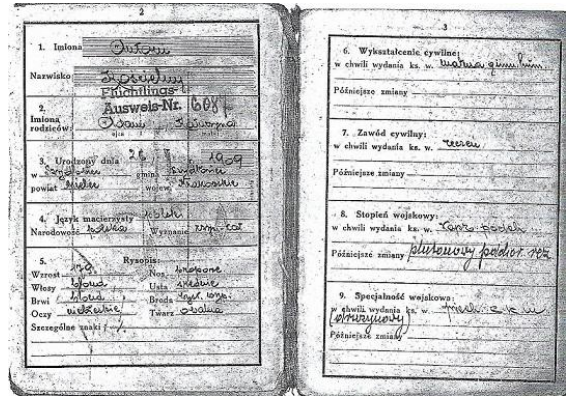 2
1. Imiona
Nazwisko
Flüchtlings-
Ausweis-Nr. 608
2.
Imiona
rodziców: Adam Katarzyna
ojca matki
3. Urodzony dnia 26 r. 1909
w gmina
powiat Mielec wojew. Krakowskie
4. Język macierzysty polski
Narodowość polska Wyznanie rzym. kat
5. Rysopis:
Wzrost 170 Nos
Włosy blond Usta średnie
Brwi blond Broda
Oczy niebieskie Twarz owalna
Szczególne znaki
3
6. Wykształcenie cywilne:
w chwili wydania ks. w.
Późniejsze zmiany
7. Zawód cywilny:
w chwili wydania ks. w. uczeń
Późniejsze zmiany
8. Stopień wojskowy:
w chwili wydania ks. w. kapr. podch
Późniejsze zmiany plutonowy podchor. rez
9. Specjalność wojskowa:
w chwili wydania ks. w. piech. c k m
Późniejsze zmiany